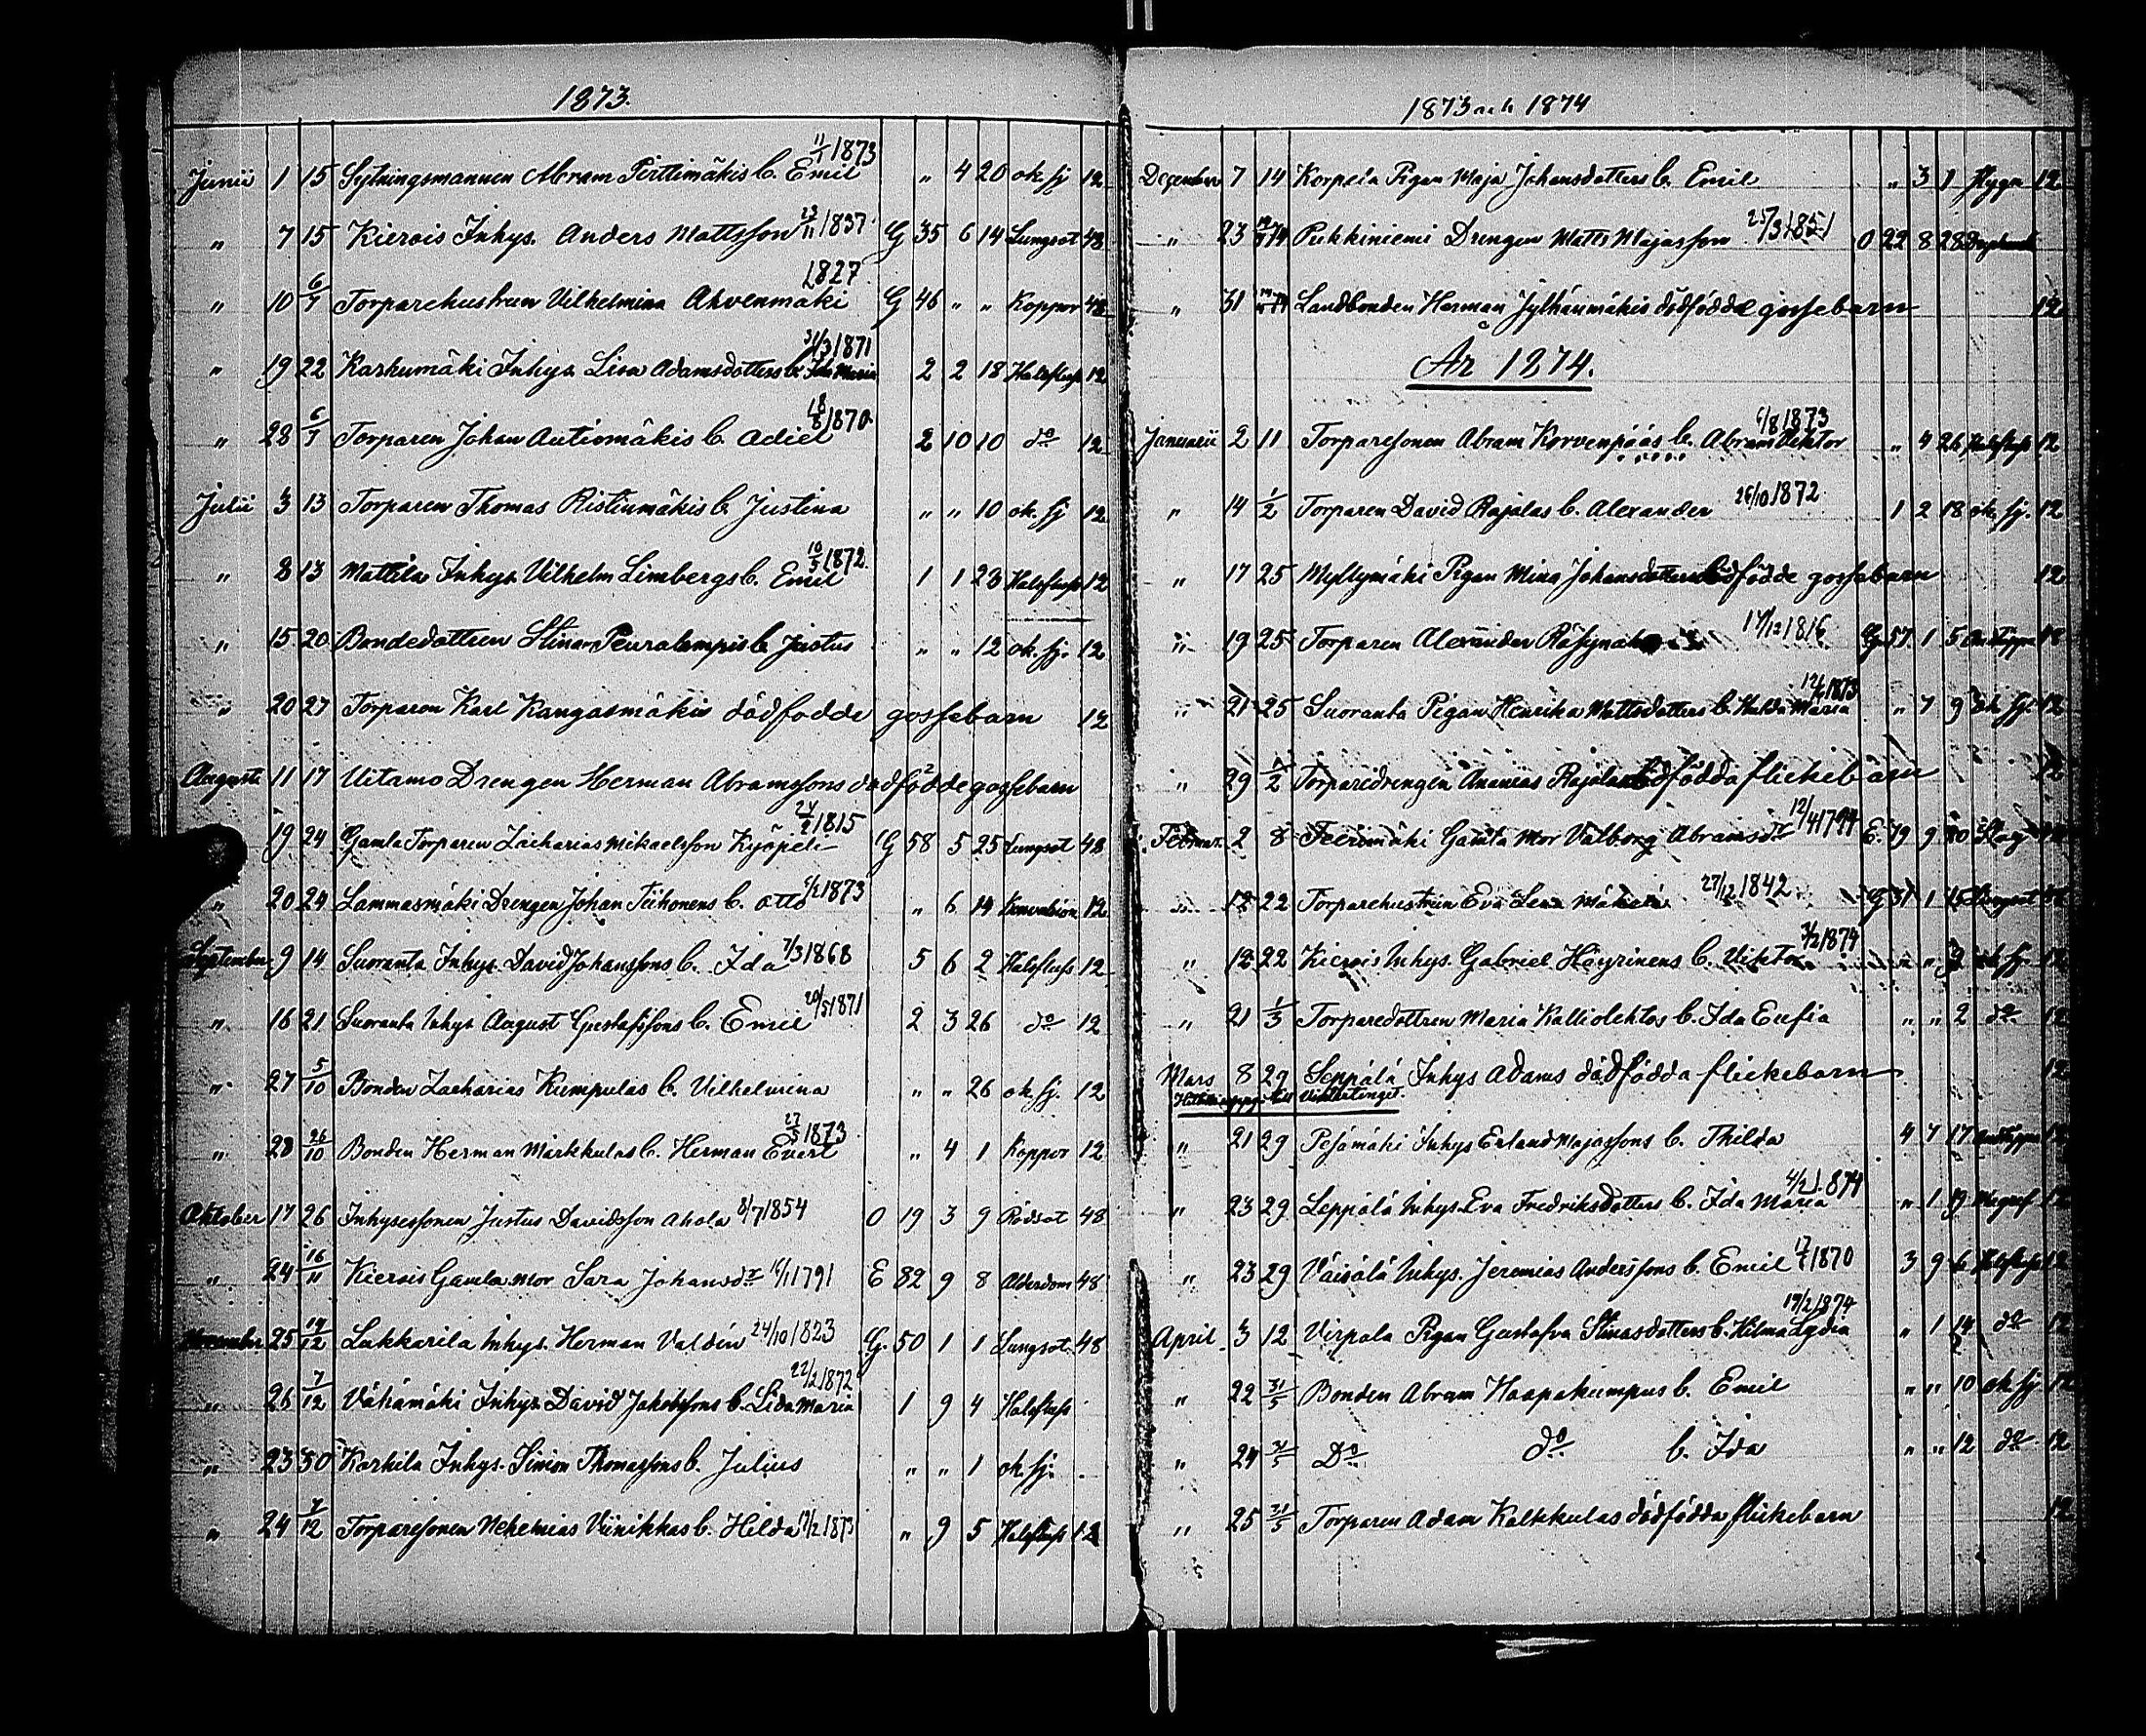 1873.
Junii 1 15 Sytningsmannen Abram Perttimäkis b. Emil 11/1 1873 " 4 20 ok. sj 12
" 7 15 Kierois Inhys. Anders Mattsson 23/11 1837 G 35 6 14 Lungsot 48
" 10 6/7 Torparehustrun Vilhelmina Ahvenmäki 1827 G 46 " " Koppor 48
" 19 22 Karhumäki Inhys. Lisa Adamsdotters b. Ida Maria 31/3 1871 2 2 18 Halsfluss 12
" 28 6/7 Torparen Johan Autiomäkis b. Adiel 18/8 1870 2 10 10 do 12
Julii 3 13 Torparen Thomas Ristinmäkis b. Justina " " 10 ok. sj 12
" 8 13 Mattila Inhys. Vilhelm Limbergs b. Emil 10/5 1872 1 1 28 Halsfluss 12
" 15 20 Bondedottren Stina Peuralampis b. Justus " " 12 ok. sj. 12
" 20 27 Torparen Karl Kangasmäkis dödfödde gossebarn 12
Augusti 11 17 Uitamo Drengen Herman Abramssons dödfödde gossebarn
19 24 Gamla Torparen Zacharias Mikaelsson Kyöpeli 24/2 1815 G 58 5 25 Lungsot 48
" 20 24 Lammasmäki Drengen Johan Tiihonens b. Otto 6/2 1873 " 6 14 Konvulsion 12
September 9 14 Suoranta Inhys. David Johanssons b. Ida 7/3 1868 5 6 2 Halsfluss 12
" 16 21 Suoranta Inhys. August Gustafssons b. Emil 20/5 1871 2 3 26 do 12
" 27 5/10 Bonden Zacharias Kumpulas b. Vilhelmina " " 26 ok. sj. 12
" 28 26/10 Bonden Herman Markkulas b. Herman Evert 27/5 1873 " 4 1 Koppor 12
Oktober 17 26 Inhysessonen Justus Davidsson Ahola 8/7 1854 O 19 3 9 Rödsot 48
" 24 16/11 Kierois Gamla mor Sara Johansdr 16/1 1791 E 82 9 8 Ålderdom 48
November 25 14/12 Lukkarila Inhys. Herman Valdén 24/10 1823 G. 50 1 1 Lungsot 48
" 26 7/12 Vähämäki Inhys. David Jakobssons b. Lida Maria 22/2 1872 1 9 4 Halsfluss
" 23 30 Karhila Inhys. Simon Thomassons b. Julius " " 1 ok. sj.
" 24 7/12 Torparesonen Nehemias Viinikkas b. Hilda 19/2 1873 " 9 5 Halsfluss 12
1873 och 1874
December 7 14 Korpela Pigan Maja Johansdotters b. Emil " 3 1 12
" 23 Pukkiniemi Drengen Matts Majasson 25/3 1851 O 22 8 28
" 31 Landbonden Herman Jylhänmäkis dödfödde gossebarn 12
År 1874.
Januarii 2 11 Torparesonen Abram Korvenpääs b. Abram Viktor 6/8 1873 " 4 26 Halsfluss 12
" 14 1/2 Torparen David Rajalas b. Alexander 26/10 1872 1 2 18 ok. sj. 12
" 17 25 Myllymäki Pigan Mina Johansdotters dödfödde gossebarn 12
" 19 25 Torparen Alexander 14/12 1816 G 57 1 5
" 21 25 Suoranta Pigan Henrika Mattsdotters b. Hulda Maria 12/6 1873 " 7 9 ok. sj. 12
" 29 1/2 Torparedrengen Ananias Rajalas dödfödda flickebarn 12
Februar. 2 8 Gamla Mor Valborg Abramsdr 12/4 1794 E. 79 9 20 Slag
" 12 22 Torparehustrun Eva Lena 27/12 1842 G 31 1 15 Lungsot
" 12 22 Kierois Inhys. Gabriel Höyrinens b. Viktor 3/2 1874 " " 9 ok. sj. 12
" 21 1/3 Torparedottren Maria Kalliolehtos b. Ida Eufia " " 2 do 12
Mars 8 29 Seppälä Inhys Adams dödfödda flickebarn 12
Hittills uppgi. till Vinttertinget.
" 21 29 Pesämäki Inhys Erland Majassons b. Thilda 4 7 17 12
" 23 29 Leppälä Inhys. Eva Fredriksdotters b. Ida Maria 4/2 1874 " 1 19 12
" 23 29 Väisälä Inhys. Jeremias Anderssons b. Emil 17/6 1870 3 9 6 Halsfluss 12
April 3 12 Virpala Pigan Gustafva Stinasdotters b. Hilma Lydia 19/2 1874 " 1 14 do 12
" 22 31/5 Bonden Abram Haapakumpus b. Emil " " 10 ok. sj 12
" 24 31/5 Do do b. Ida " " 12 do 12
" 25 31/5 Torparen Adam Kalkkulas dödfödda flickebarn 12